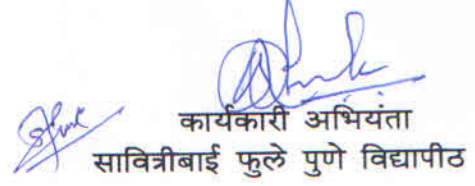 कार्यकारी अभियंता
सावित्रीबाई फुले पुणे विद्यापीठ